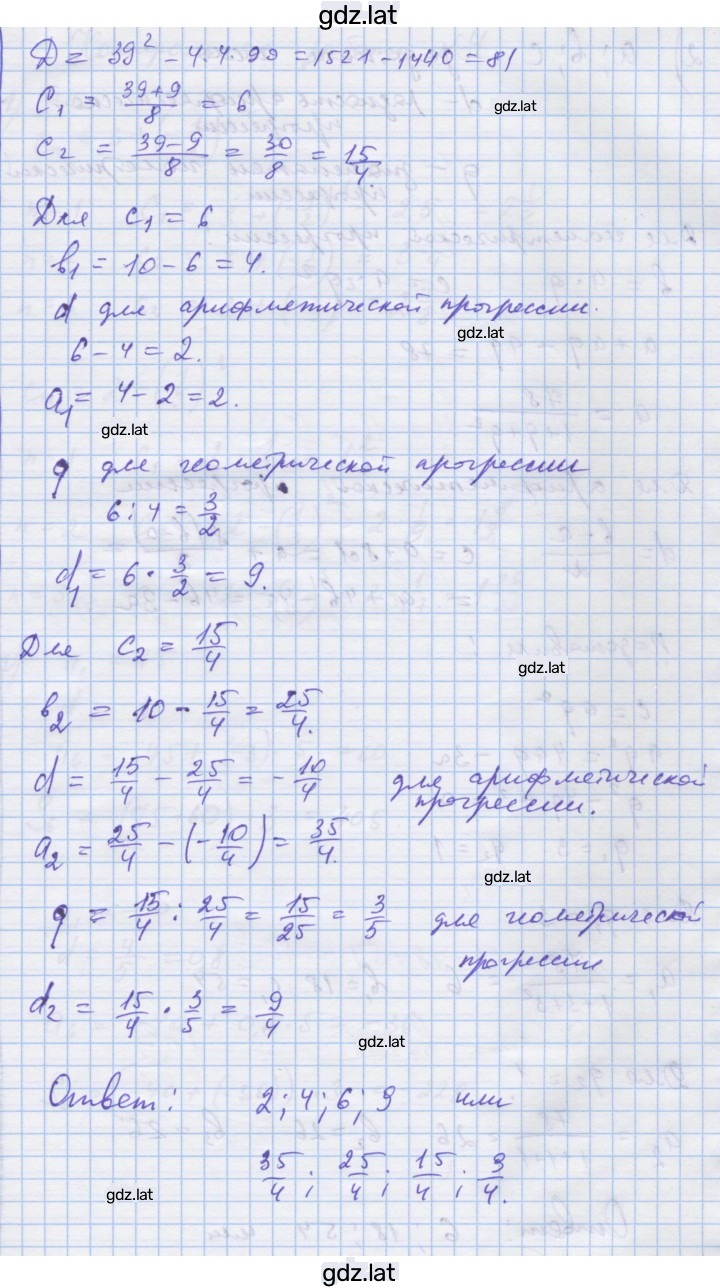 gdz.lat
D = 39² - 4.4.99 = 1521 - 1440 = 81
C₁ = (39+9)/8 = 6
gdz.lat
C₂ = (39-9)/8 = 30/8 = 15/4.
Для C₁ = 6
b₁ = 10 - 6 = 4.
d для арифметической прогрессии.
gdz.lat
6 - 4 = 2.
a₁ = 4 - 2 = 2.
gdz.lat
q для геометрической прогрессии
6 : 4 = 3/2
d₁ = 6 · 3/2 = 9.
Для C₂ = 15/4
gdz.lat
b₂ = 10 - 15/4 = 25/4.
d = 15/4 - 25/4 = - 10/4 для арифметической
прогрессии.
a₂ = 25/4 - (- 10/4) = 35/4.
gdz.lat
q = 15/4 : 25/4 = 15/25 = 3/5 для геометрической
прогрессии
d₂ = 15/4 · 3/5 = 9/4
gdz.lat
Ответ: 2; 4; 6; 9 или
35/4; 25/4; 15/4; 9/4.
gdz.lat
gdz.lat